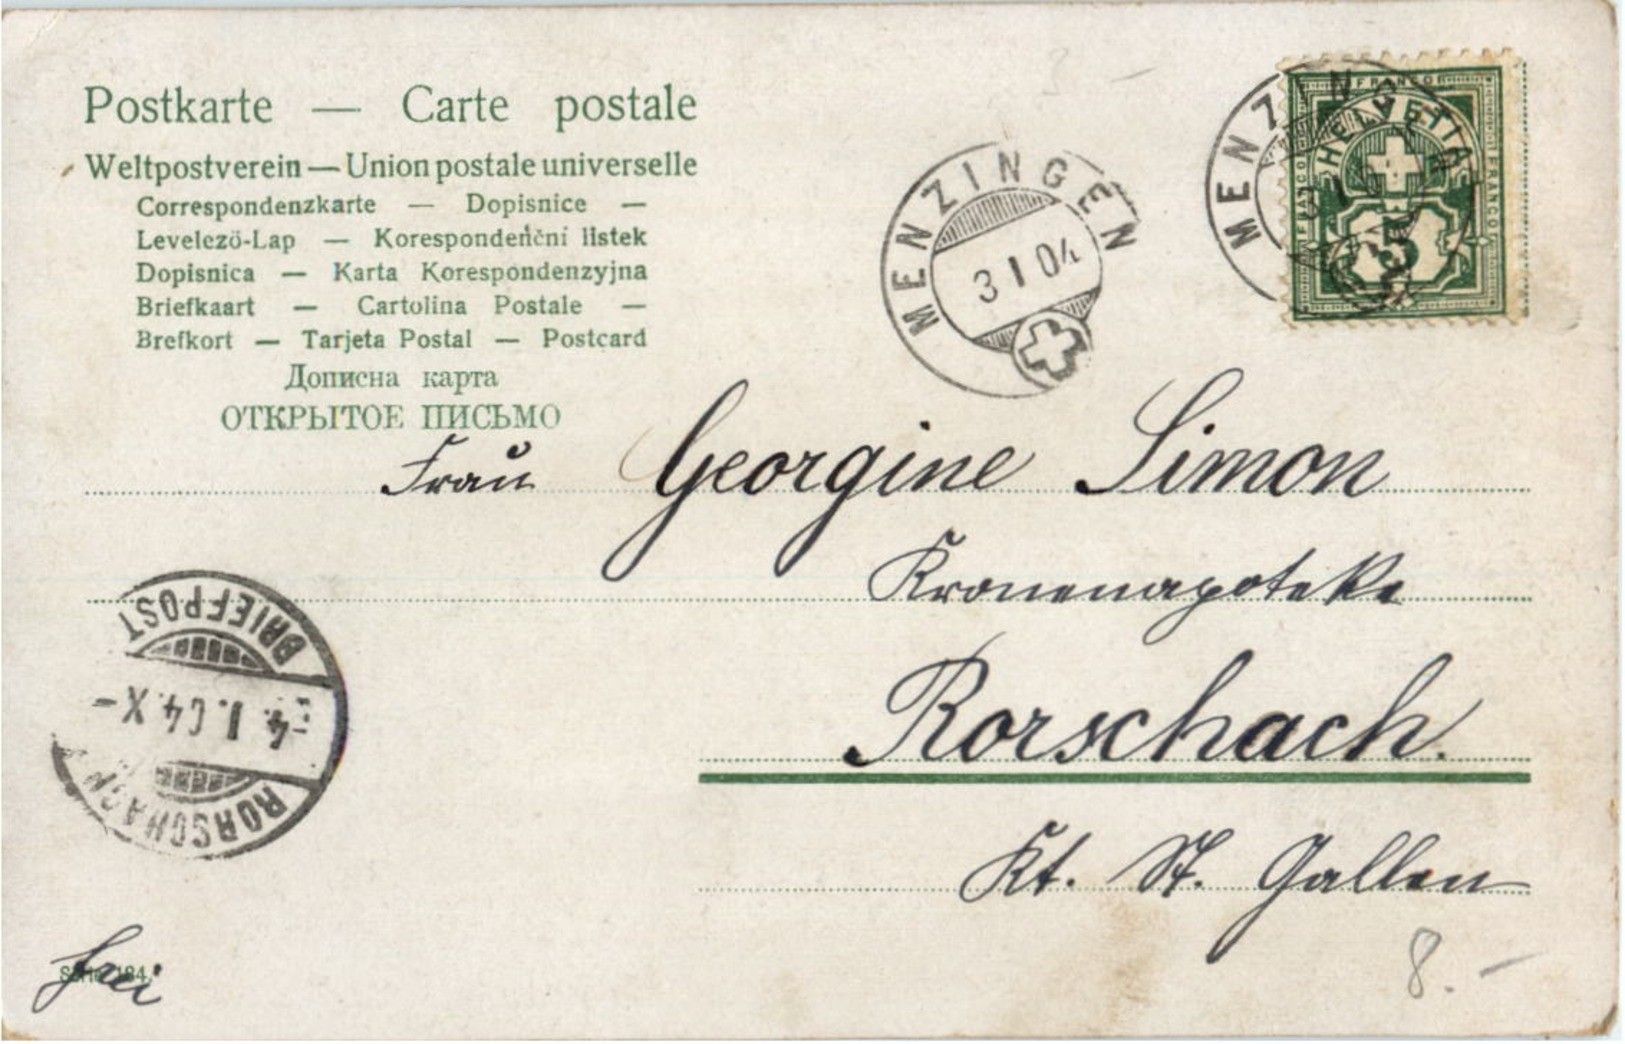 Postkarte — Carte postale
Weltpostverein — Union postale universelle
Correspondenzkarte — Dopisnice —
Levelezö-Lap — Korespondenční listek
Dopisnica — Karta Korespondenzyjna
Briefkaart — Cartolina Postale —
Brefkort — Tarjeta Postal — Postcard
Дописна карта
ОТКРЫТОЕ ПИСЬМО
MENZINGEN
3 I 04
MENZING
FRANCO
HELVETIA
FRANCO
5
Frau Georgine Simon
Kronenapoteke
Rorschach.
Kt. St. Gallen
BRIEFPOST
4. I. 04. X-
RORSCHACH
frei
8.-